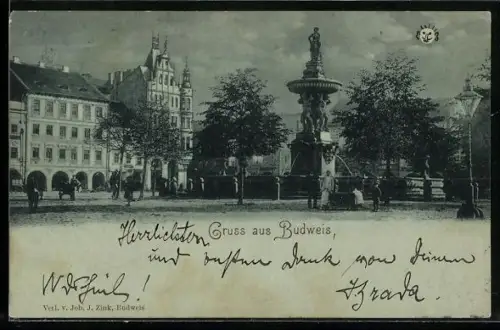 Gruss aus Budweis,
Herrlichsten
und besten Dank von Deinem
Verl. v. Joh. J. Zink, Budweis